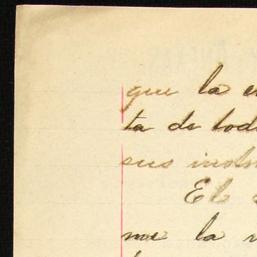 que la
ta de tod
sus inst
El
me la